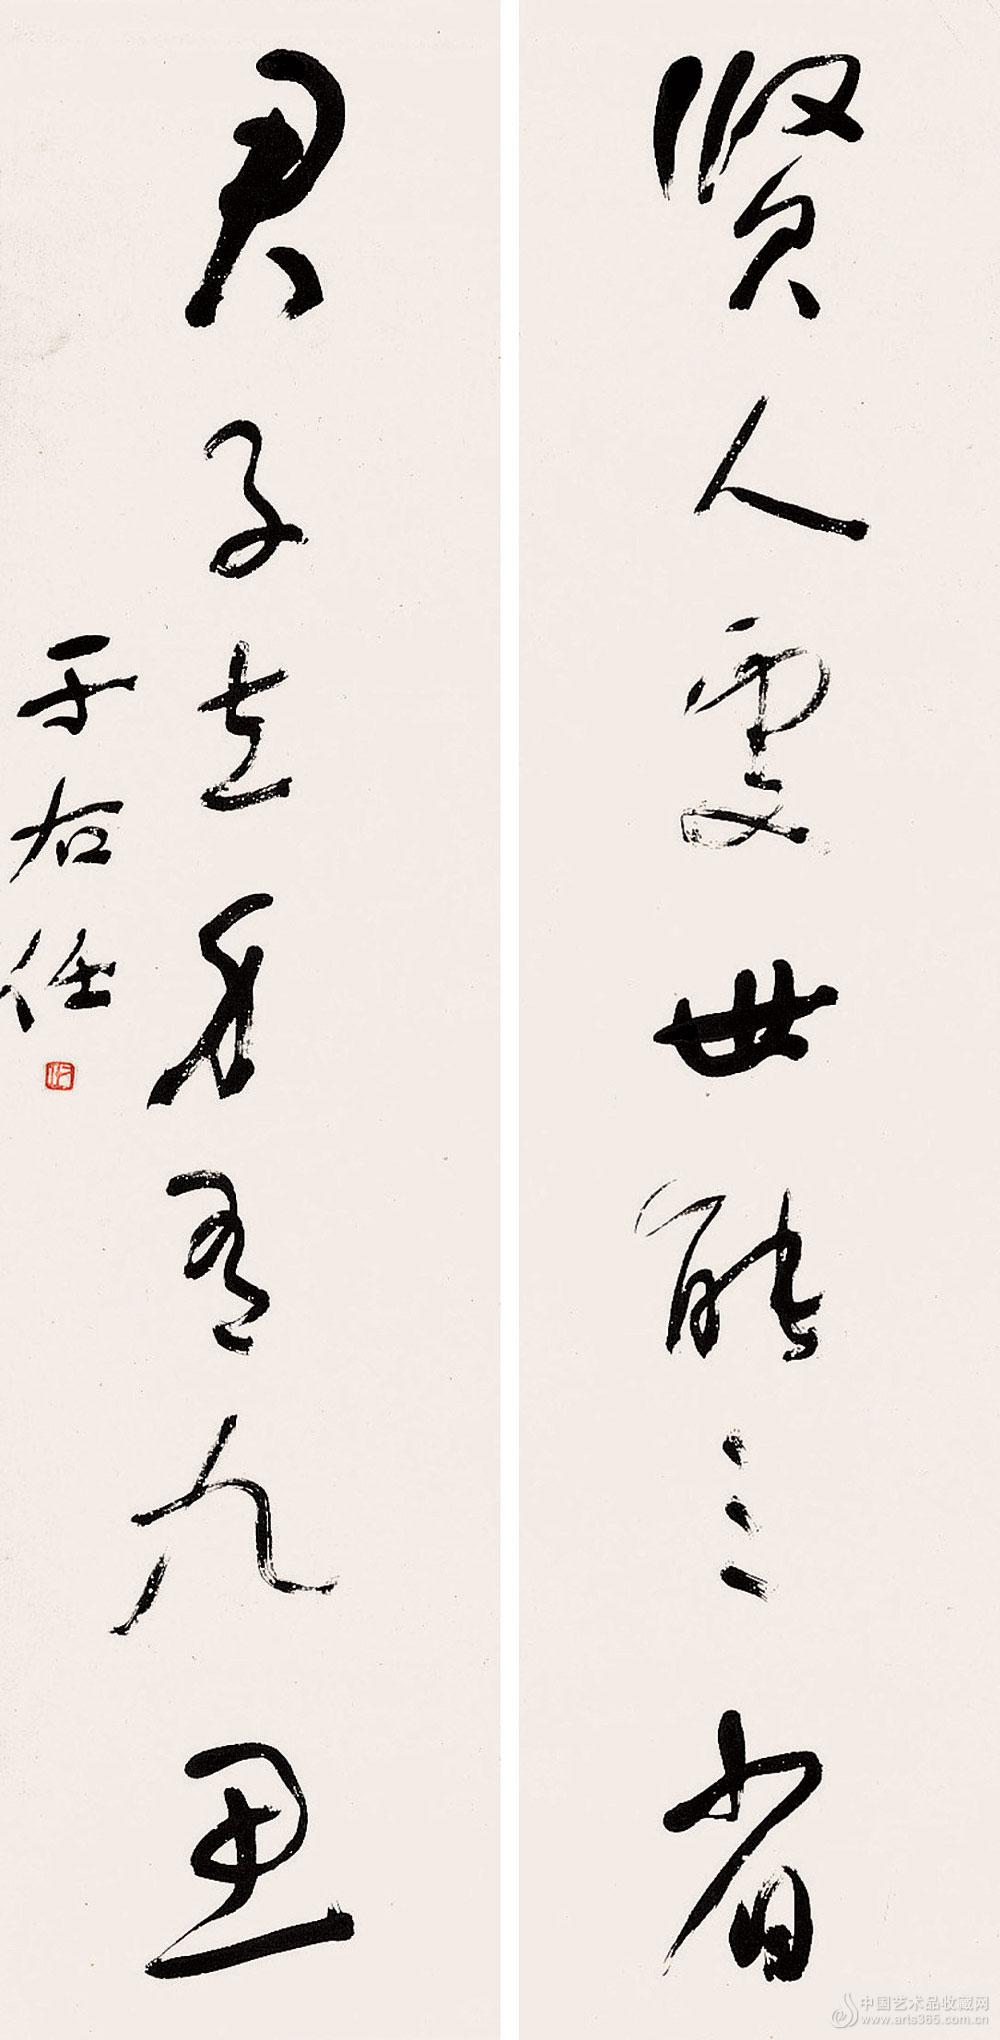 贤人处世能三省
君子立身有九思
于右任
中国艺术品收藏网
www.arts365.com.cn